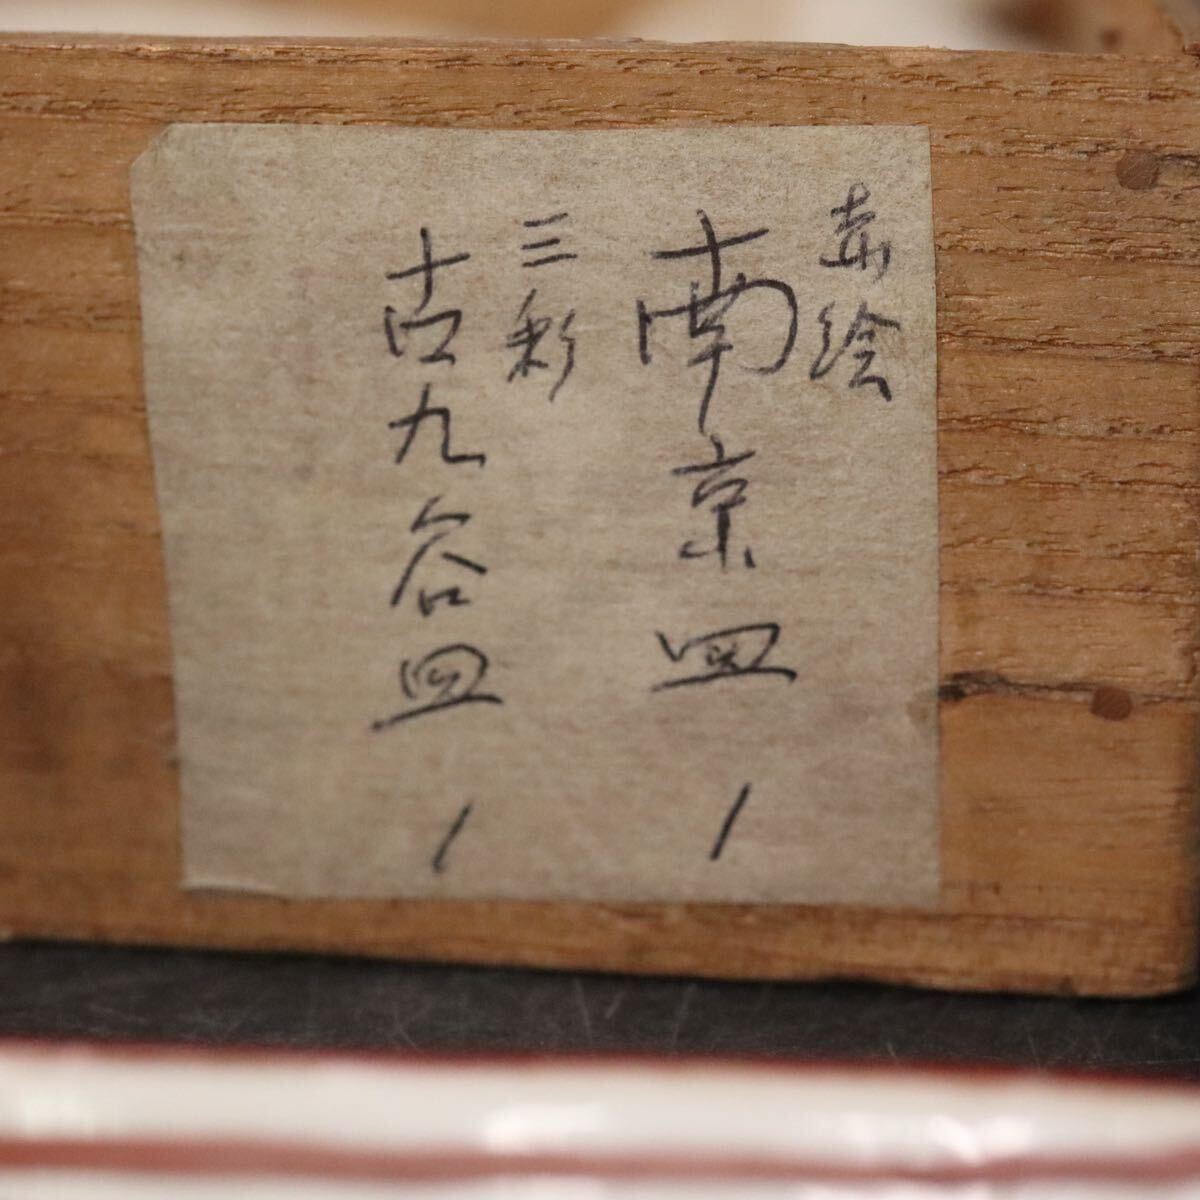 赤絵
南京皿 1
三彩
古九谷皿 1